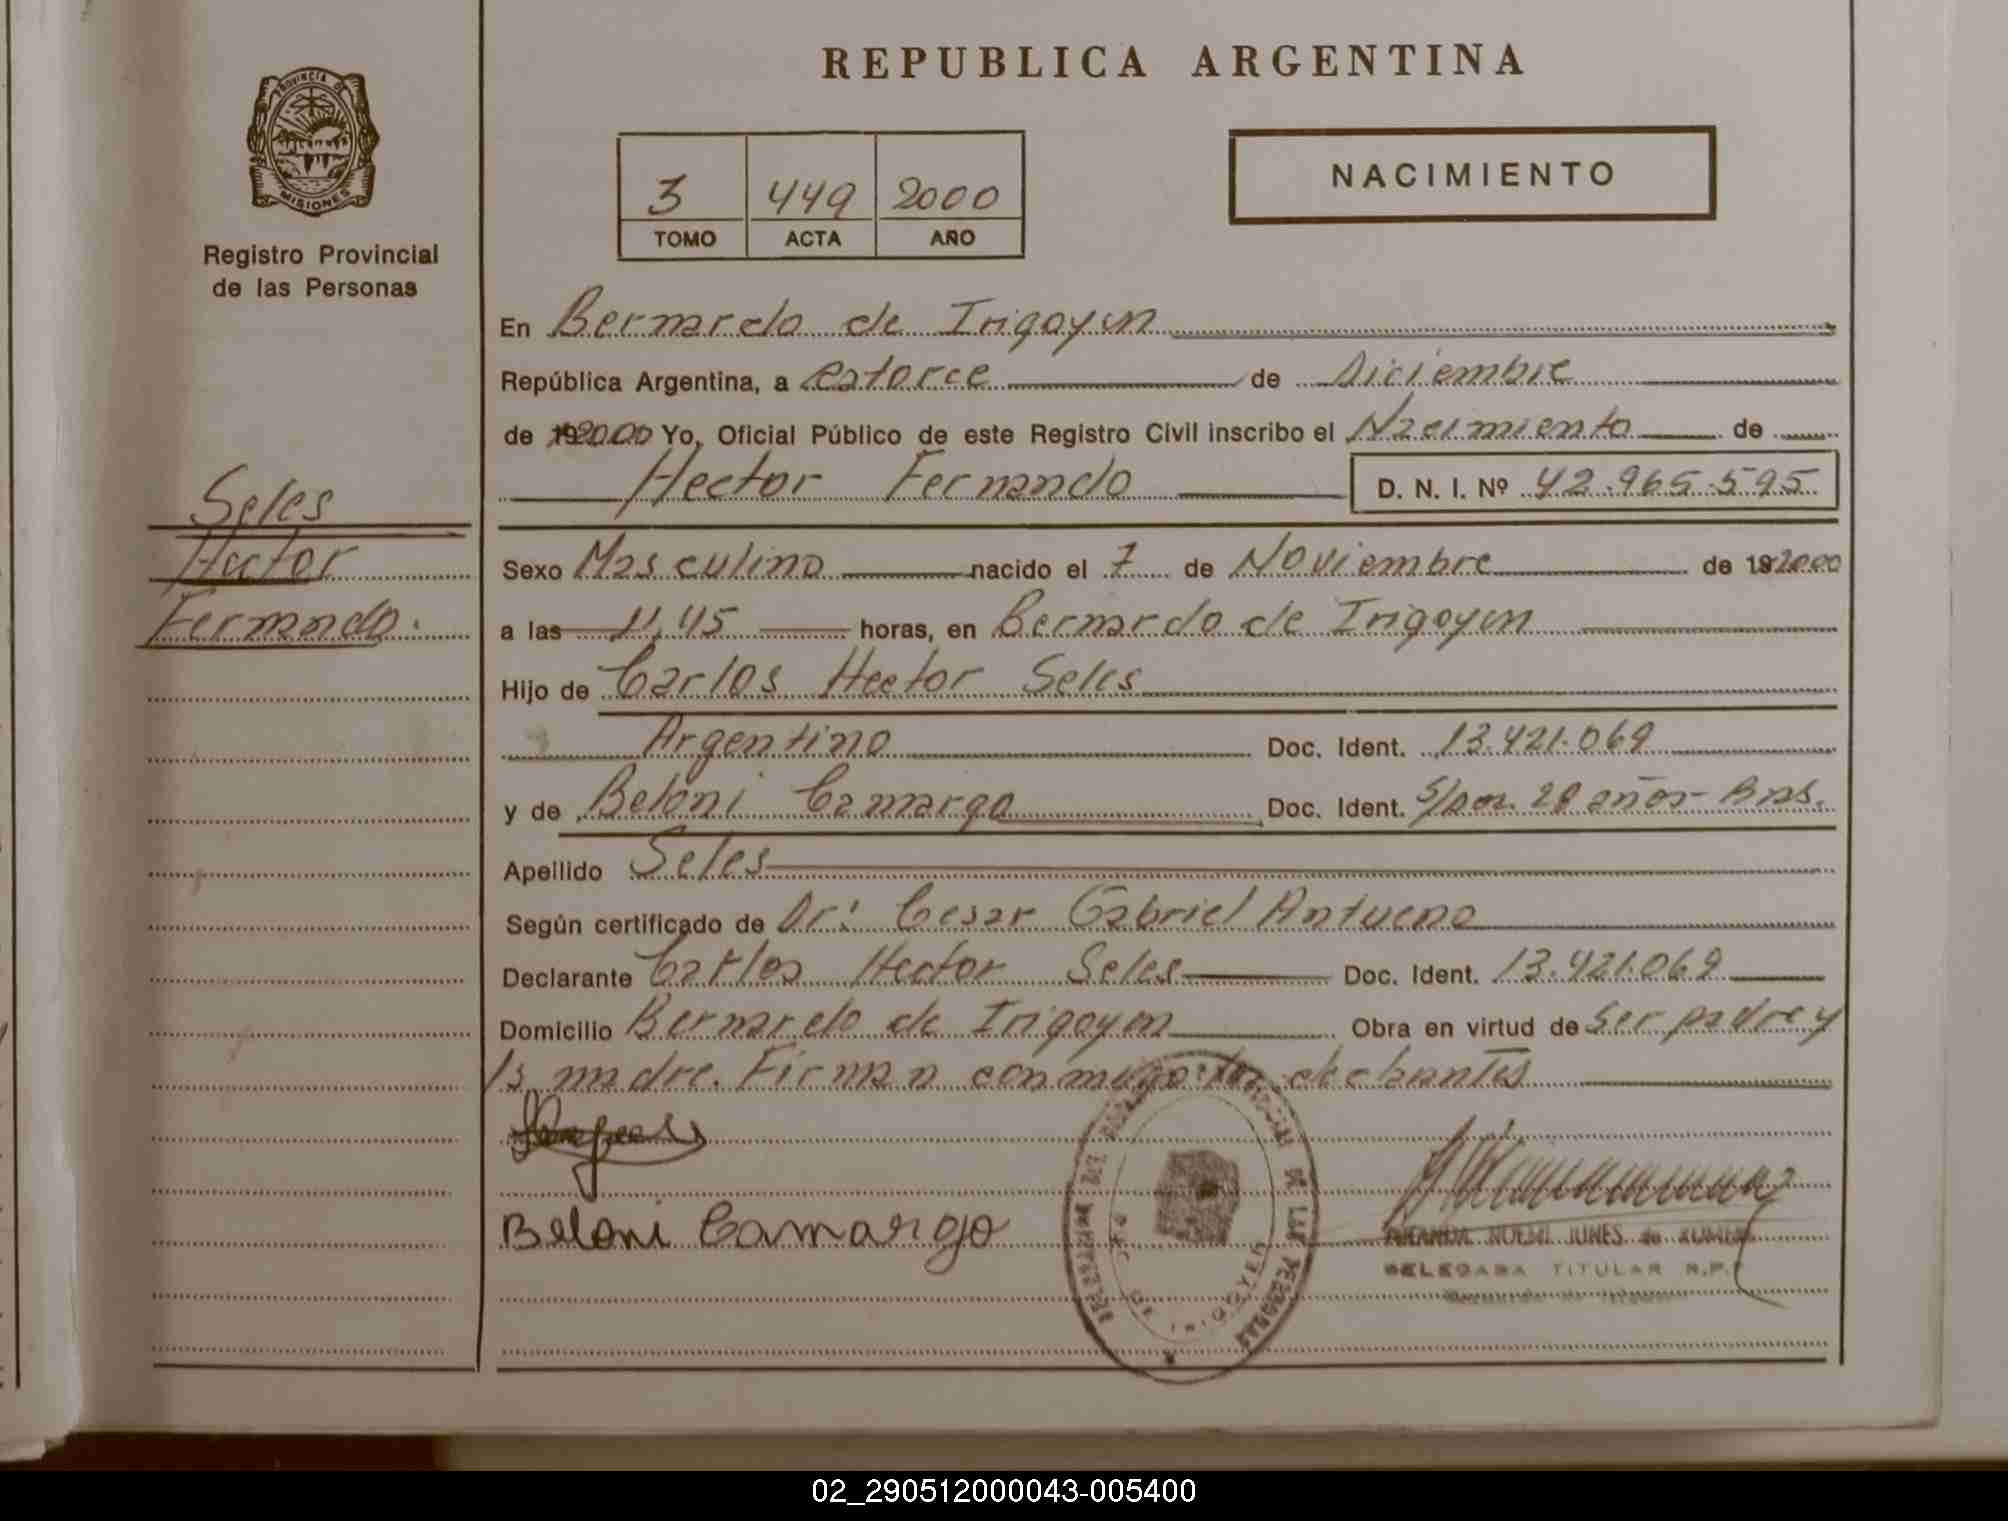 REPUBLICA ARGENTINA
PROVINCIA DE
MISIONES
Registro Provincial
de las Personas
3 449 2000
TOMO ACTA AÑO
NACIMIENTO
En Bernardo de Irigoyen
República Argentina, a catorce de Diciembre
de 192000 Yo, Oficial Público de este Registro Civil inscribo el Nacimiento de
Hector Fernando D. N. I. Nº 42.965.595
Seles
Hector
Fernando.
Sexo Masculino nacido el 7 de Noviembre de 192000
a las 11,45 horas, en Bernardo de Irigoyen
Hijo de Carlos Hector Seles
Argentino Doc. Ident. 13.421.069
y de Beloni Camargo Doc. Ident. S/por. 28 años- Bras.
Apellido Seles
Según certificado de Dr: Cesar Gabriel Antueno
Declarante Carlos Hector Seles Doc. Ident. 13.421.069
Domicilio Bernardo de Irigoyen Obra en virtud de ser padre y
la madre. Firman conmigo los
Beloni Camargo
DE LAS PERSONAS
DE IRIGOYEN
NOEMI JUNES de
DELEGADA TITULAR R.P.
02_290512000043-005400